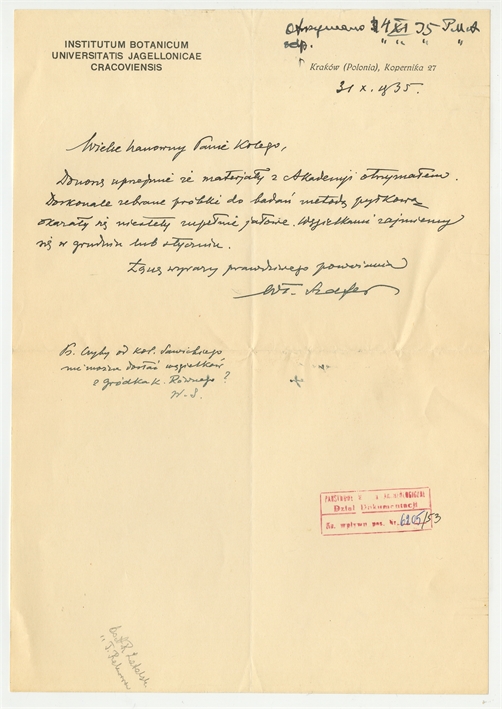 otrzymano 4 XI 35 P.M.A
odp.
INSTITUTUM BOTANICUM
UNIVERSITATIS JAGELLONICAE
CRACOVIENSIS
Kraków (Polonia), Kopernika 27
31 X. 1935.
Wielce szanowny Panie Kolego,
Donoszę uprzejmie że materjały z Akademji otrzymałem.
Doskonale zebrane próbki do badań metodą pyłkową
okazały się niestety zupełnie jałowe. Węgielkami zajmiemy
się w grudniu lub styczniu.
Łączę wyrazy prawdziwego poważania
Wł. Szafer
Ps. Czyby od kol. Sawickiego
nie można dostać węgielków
z Gródka k. Równego?
W. S.
PAŃSTWOWE
Dział Dokumentacji
Nr. wpływu poz. Nr. 6205/53